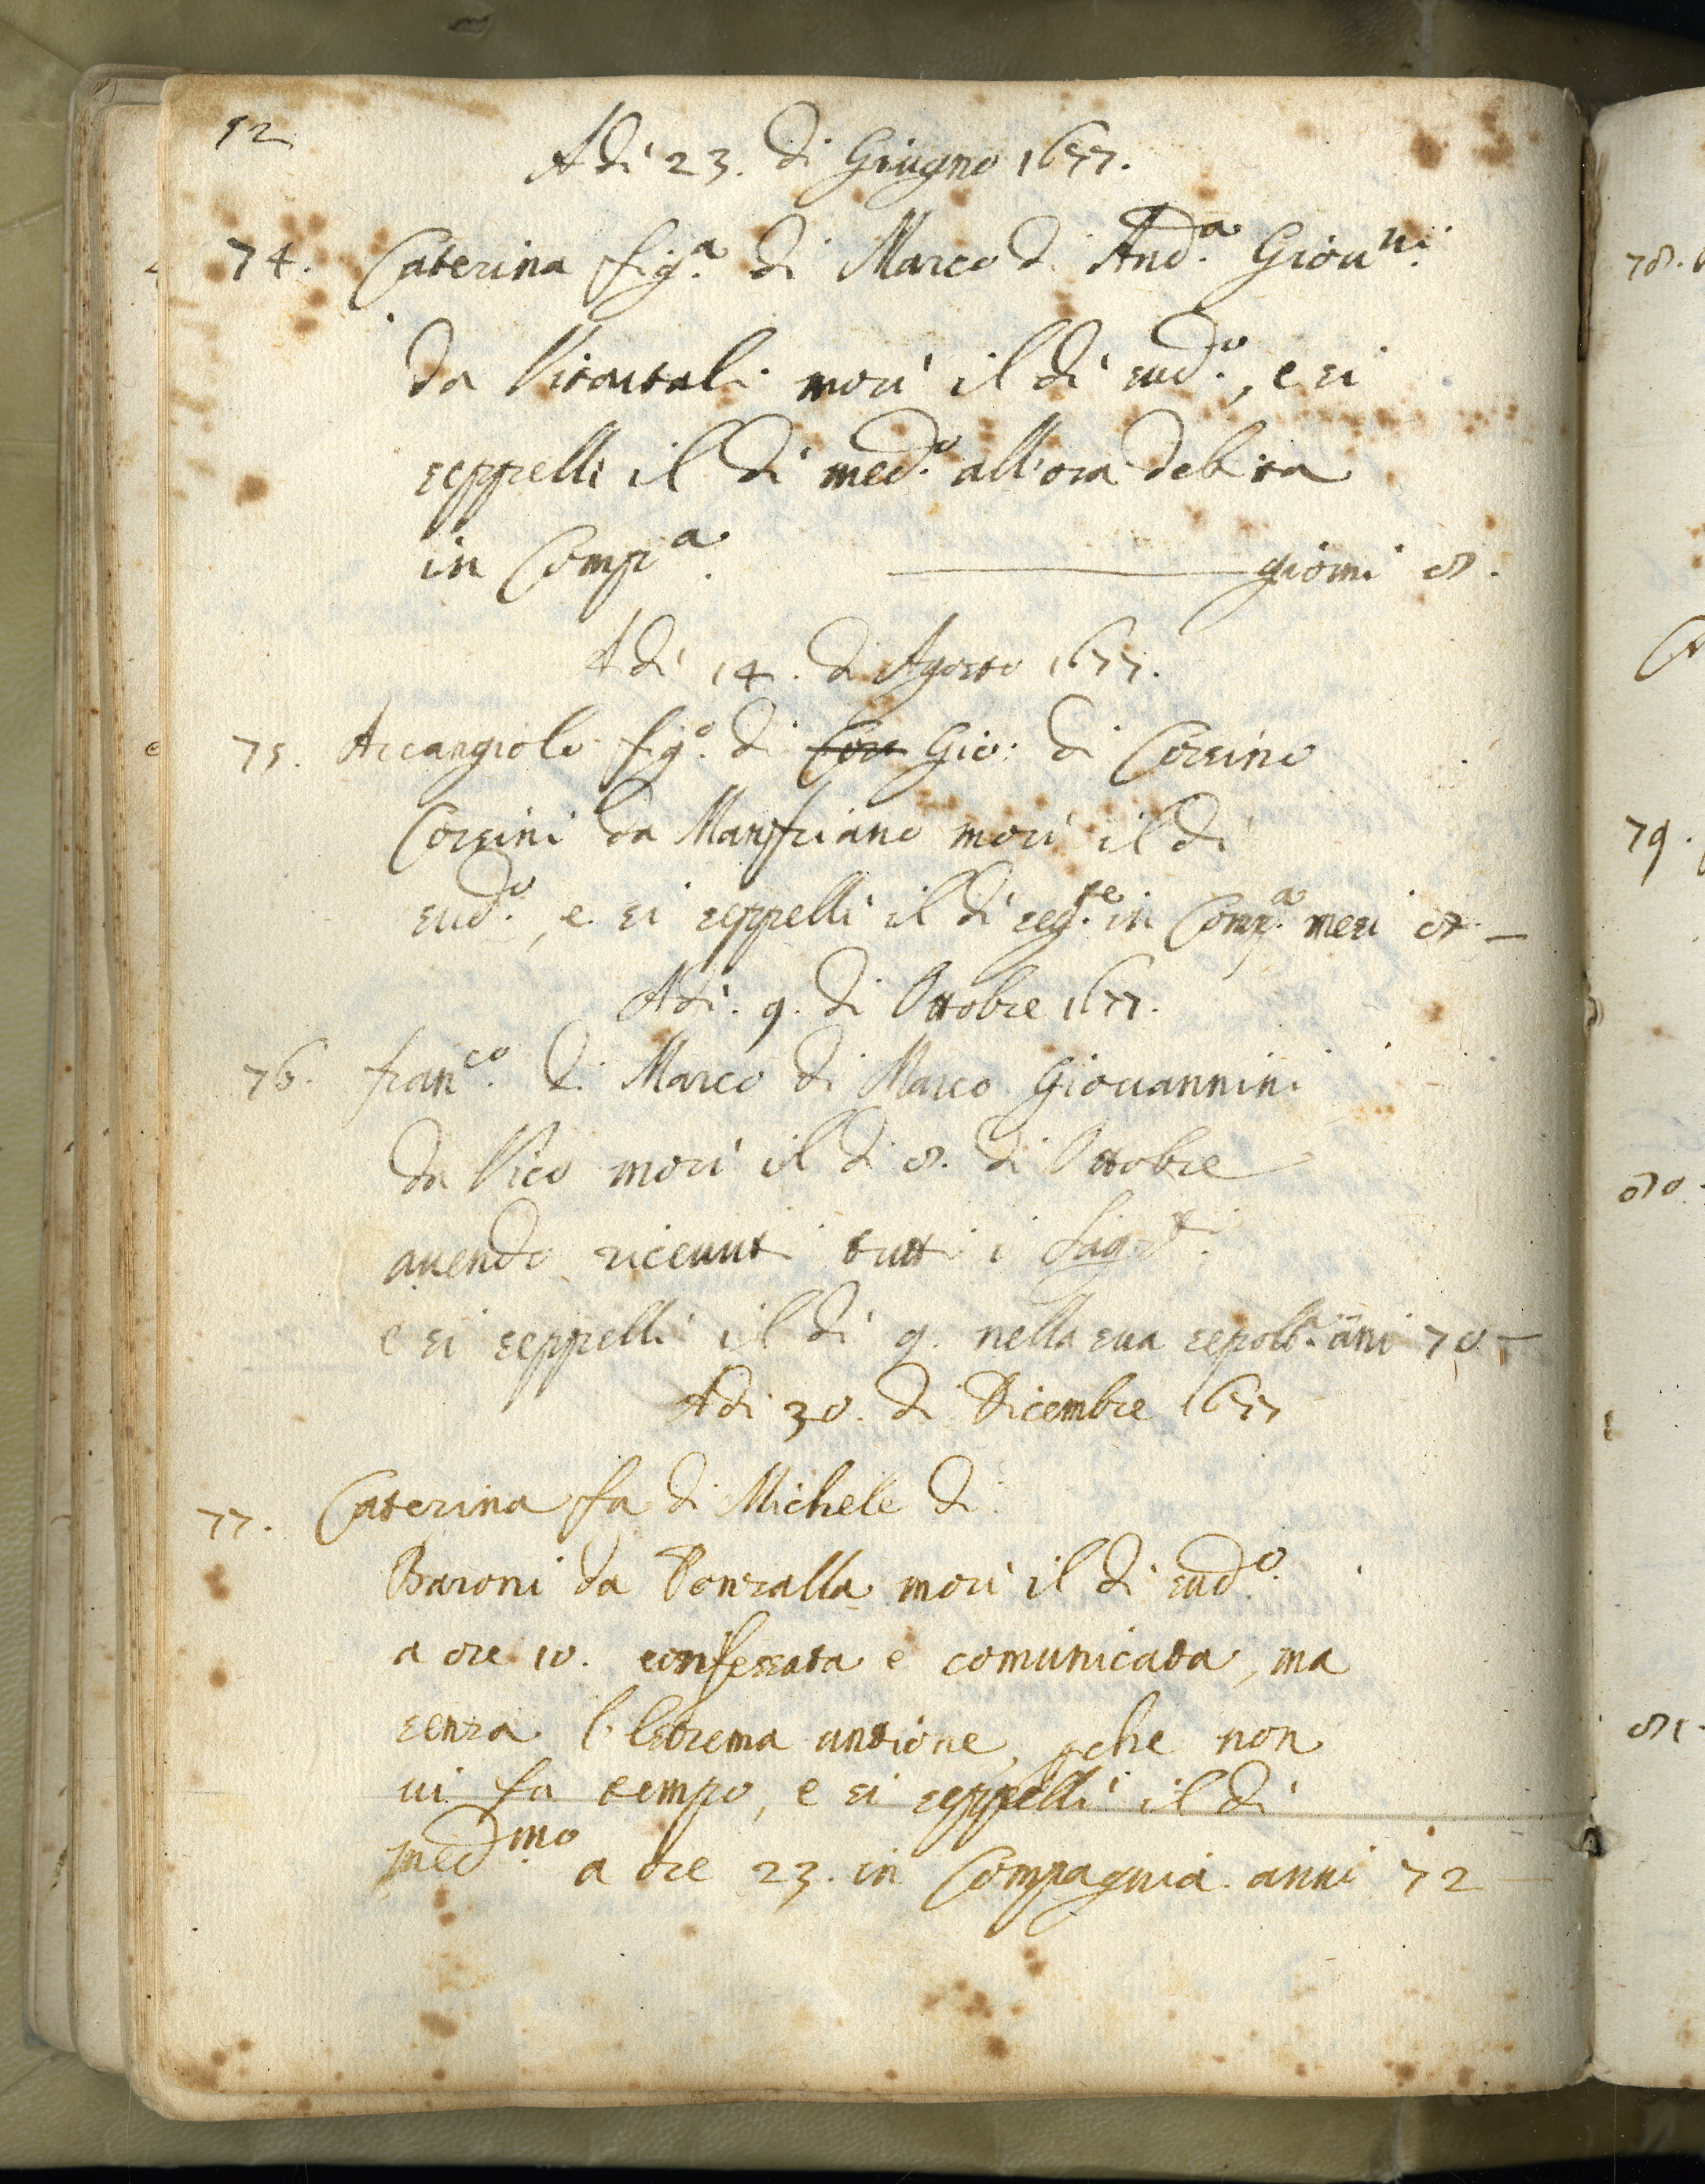 12
Adi 23. di Giugno 1677.
74. Caterina fig.ª di Marco di And.ª Giou.ni
da morì il dì sud.º, e si
seppellì il dì med.º all'ora debita
in Comp.ª giorni 8.
Adi 14. di Agosto 1677.
75. Arcangiolo fig.º di Cors Gio: di Corsino
Corsini da Manfriano morì il dì
sud.º, e si seppellì il dì seg.te in Comp.ª mesi
Adi. 9. di Ottobre 1677.
76. Fran.co di Marco di Marco Giouannini
da Vico morì il dì 8. di Ottobre
auendo riceuuti tutti i Sag.ti
e si seppellì il dì 9. nella sua sepolt.ª ani 70 –
Adi 30. di Dicembre 1677
77. Caterina fa di Michele di
Baroni da morì il dì sud.º
a ore 10. confessata e comunicata, ma
senza l'Estrema untione, pche non
ui fu tempo, e si seppellì il dì
med.mo a ore 23. in Compagnia. anni 72 –
78.
79.
80.
81.